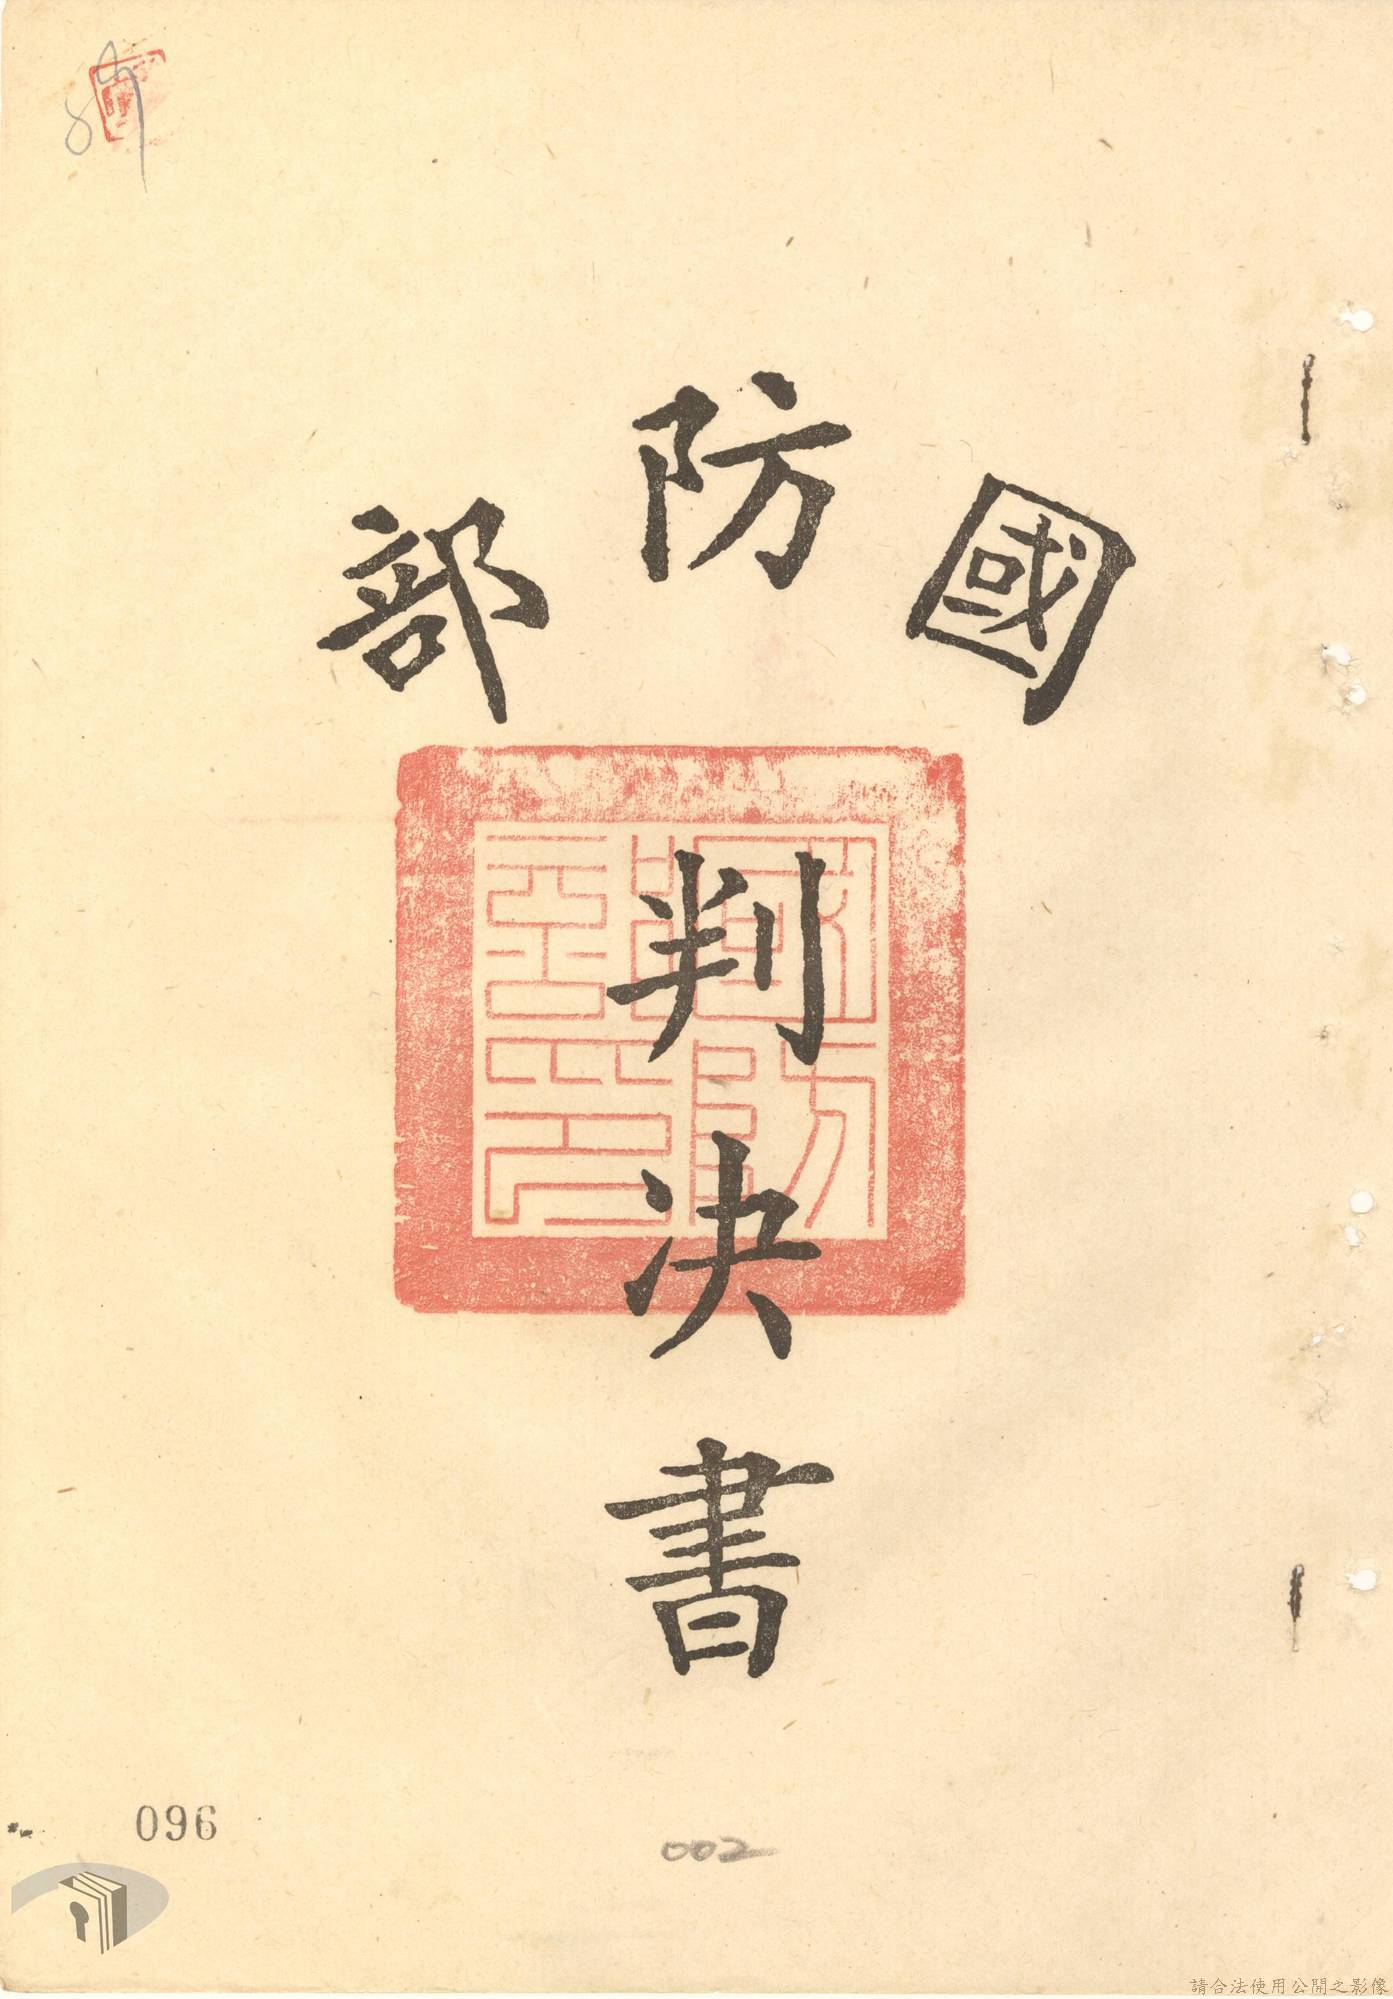 國防部
判決書
096
002
請合法使用公開之影像